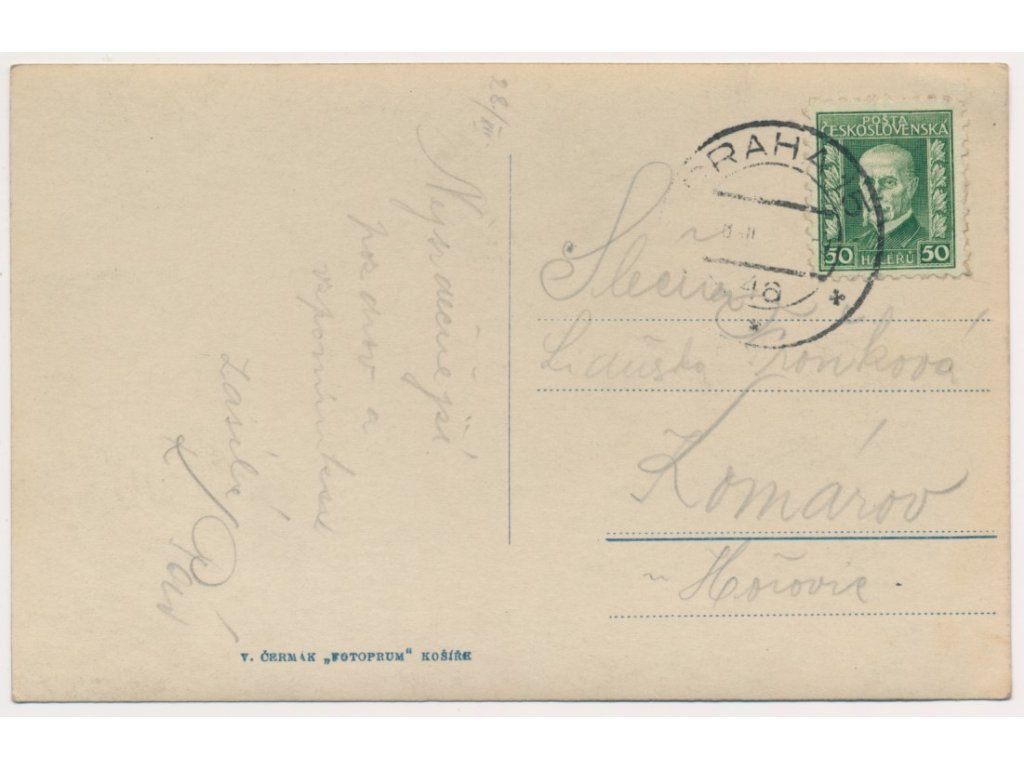 28/III
Nejsrdečnější
pozdrav a
vzpomínkou
zasílá
POŠTA
ČESKOSLOVENSKÁ
50 HALÉŘŮ 50
PRAHA
46
Slečna
Liduška Fronková
Komárov
u Hořovic
V. ČERMÁK „FOTOPRUM" KOŠÍŘE